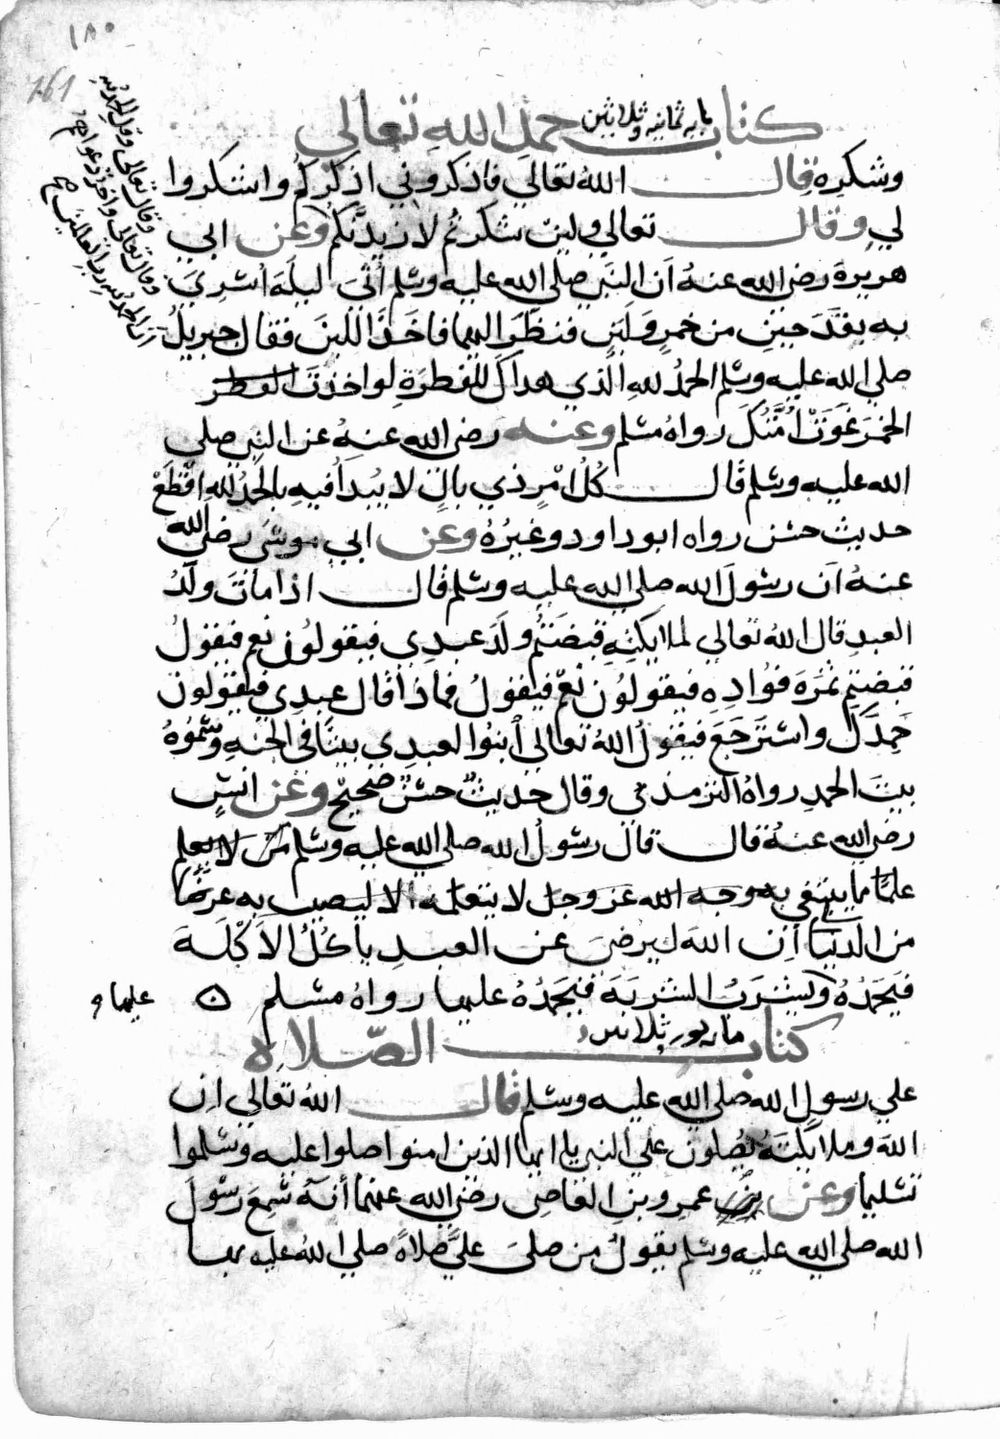 ١٨٠
161
وقال تعالى وقل الحمد لله
وقال تعالى واخر دعواهم
ان الحمد لله رب العالمين
كتاب حمد الله تعالي
مايه ثمانيه وثلاثين
وشكره قال الله تعالي فاذكروني اذكركم واشكروا
لي وقال تعالي ولين شكرتم لازيدنكم وعن ابي
هريرة رضي الله عنه ان النبي صلي الله عليه وسلم أتي ليلة اسري
به بقدحين من خمر ولبن فنظر اليهما فاخذ اللبن فقال جبريل
صلي الله عليه وسلم الحمد لله الذي هداك للفطرة لو اخذت
الخمر غوت امتك رواه مسلم وعنه رضي الله عنه عن النبي صلي
الله عليه وسلم قال كل امر ذي بال لا يبدأ فيه بالحمد لله اقطع
حديث حسن رواه ابو داود وغيره وعن ابي موسى رضي الله
عنه ان رسول الله صلي الله عليه وسلم قال اذا مات ولد
العبد قال الله تعالي لملايكته قبضتم ولد عبدي فيقولون نعم فيقول
قبضتم ثمرة فؤاده فيقولون نعم فيقول فماذا قال عبدي فيقولون
حمدك واسترجع فيقول الله تعالى ابنوا لعبدي بيتا في الجنه وسموه
بيت الحمد رواه الترمذي وقال حديث حسن صحيح وعن انس
رضي الله عنه قال قال رسول الله صلي الله عليه وسلم من لا يعلم
علما مما يبتغي به وجه الله عز وجل لا يتعلمه الا ليصيب به عرضا
من الدنيا ان الله ليرضى عن العبد ياكل الاكلة
فيحمده ويشرب الشربة فيحمده عليها رواه مسلم
عليها و
كتاب الصلاة
ثلاثين
علي رسول الله صلي الله عليه وسلم قال الله تعالي ان
الله وملايكته يصلون علي النبي يا ايها الذين امنوا صلوا عليه وسلموا
تسليما وعن عمرو بن العاصي رضي الله عنهما أنه سمع رسول
الله صلي الله عليه وسلم يقول من صلى علي صلاة صلي الله عليه بها